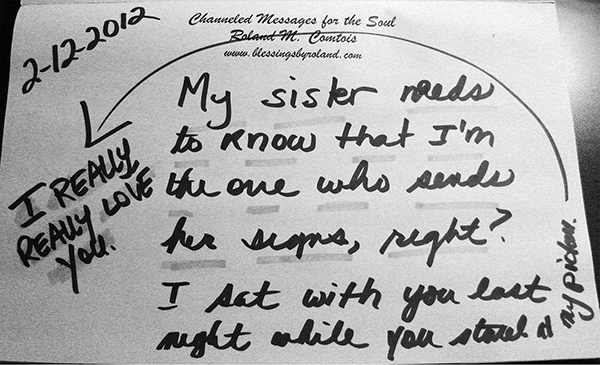 2-12-2012
Channeled Messages for the Soul
Roland M. Comtois
www.blessingsbyroland.com
My sister needs
to know that I'm
the one who sends
her signs, right?
I sat with you last
night while you stared @
my picture.
I REALLY,
REALLY LOVE
you.